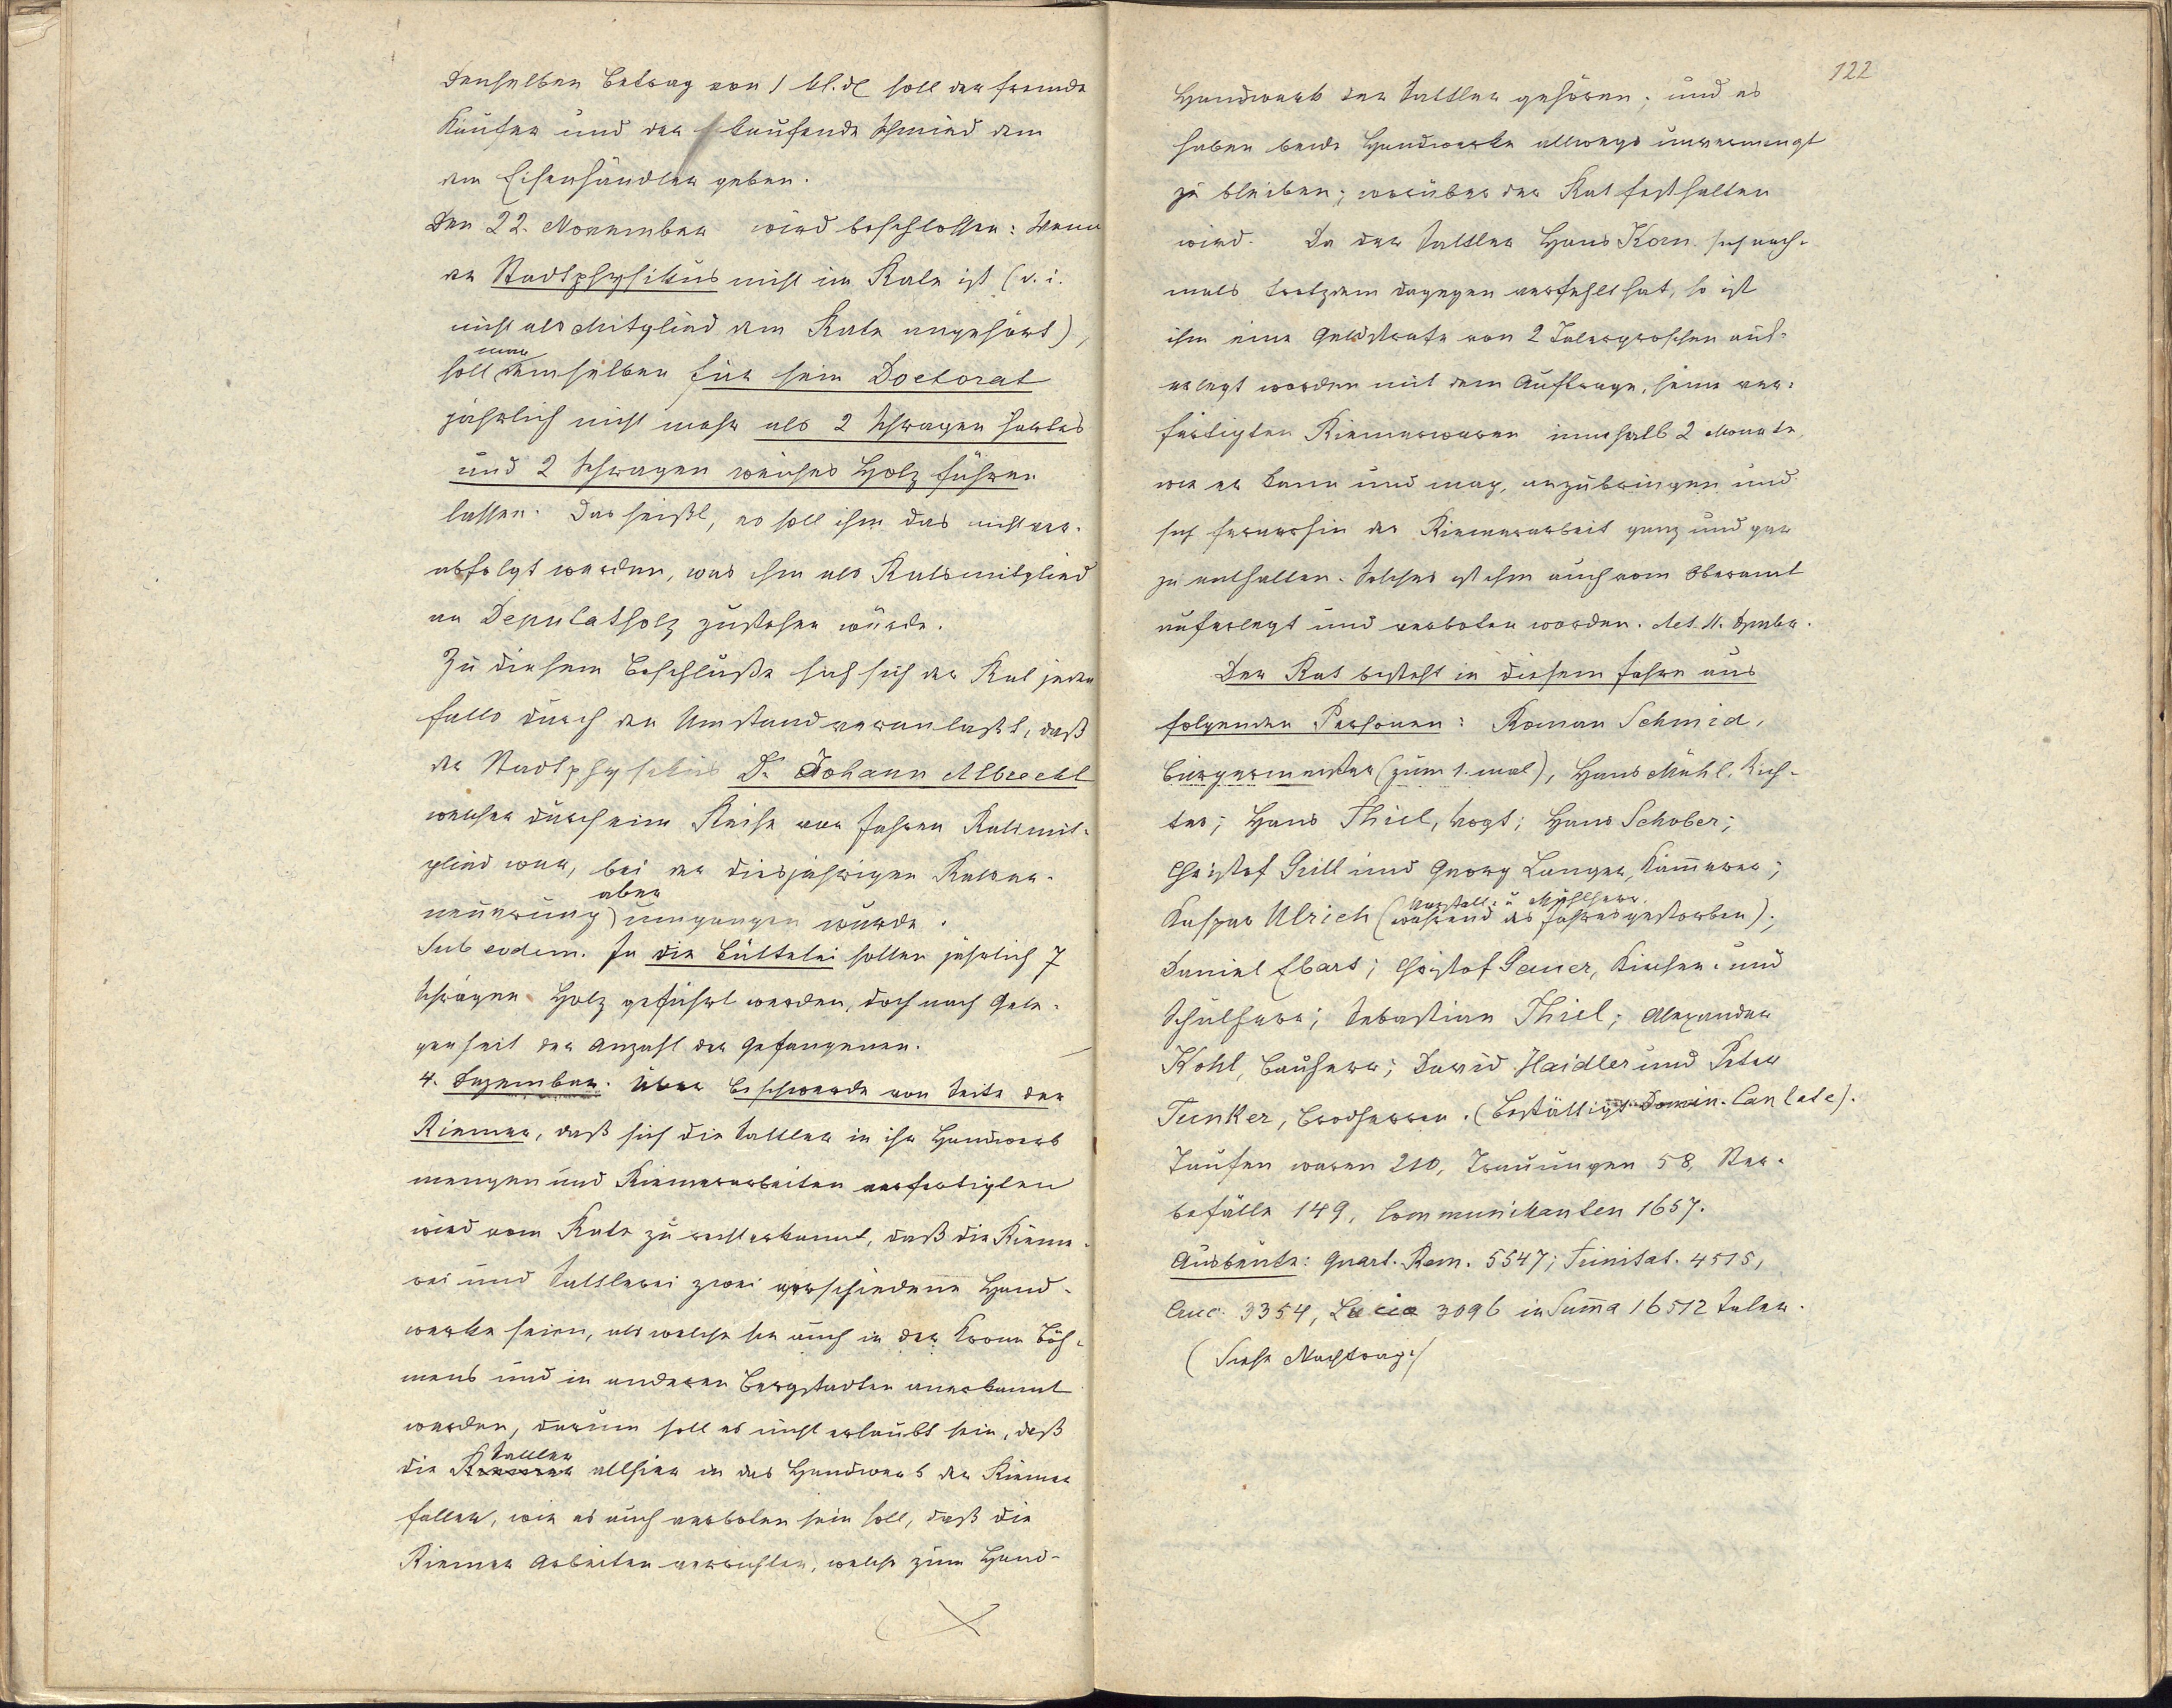 denselben Betrag von 1 kl. d soll der fremde
Käufer und der kaufende Schmied dem
dem Eisenhändler geben.
Den 22. November wird beschlossen: Wenn
der Stadtphysikus nicht im Rate ist (d. i.
nicht als Mitglied dem Rate angehört),
man
soll demselben für sein Doctorat
jährlich nicht mehr als 2 Schragen hartes
und 2 Schragen weiches Holz führen
lassen. Das heißt, es soll ihm das nicht ver-
abfolgt werden, was ihm als Ratsmitglied
an Deputatholz zustehen würde.
Zu diesem Beschluße sah sich der Rat jeden
falls durch den Umstand veranlaßt, daß
der Stadtphysikus Dr. Johann Albrecht
welcher durch eine Reihe von Jahren Ratsmit-
glied war, bei der diesjährigen Ratser-
aber
neuerung umgangen wurde.
Sub eodem. In die Büttelei sollen jährlich 7
Schragen Holz geführt werden, doch nach Gele-
genheit der Anzahl der Gefangenen.
4. Dezember. Über Beschwerde von Seite der
Riemer, daß sich die Sattler in ihr Handwerk
mengen und Riemerarbeiten verfertigten
wird vom Rate zu recht erkannt, daß die Rieme-
rei und Sattlerei zwei verschiedene Hand-
werke seien, als welche sie auch in der Krone Böh-
mens und in anderen Bergstadten anerkannt
werden, darum soll es nicht erlaubt sein, daß
Sattler
die Riemer allhier in das Handwerk der Riemer
fallen, wie es auch verboten sein soll, daß die
Riemer Arbeiten verrichten, welche zum Hand-
122
Handwerk der Sattler gehören; und es
haben beide Handwerke allwegs unvermengt
zu bleiben; worüber der Rat festhalten
wird. Da der Sattler Hans Korn sich noch-
mals trotzdem dagegen verfehlt hat, so ist
ihm eine Geldstrafe von 2 Talergroschen auf-
erlegt worden mit dem Auftrage, seine ver-
fertigten Riemerwaren innerhalb 2 Monate,
wie er kann und mag, anzubringen und
sich fernerhin der Riemerarbeit ganz und gar
zu enthalten. Solches ist ihm auch vom Oberamt
auferlegt und verboten worden. Act. 11. Dzmbr.
Der Rat besteht in diesem Jahre aus
folgenden Personen: Roman Schmid,
Bürgermeister (zum 1. mal), Hans Mühl, Rich-
ter; Hans Thiel, Vogt; Hans Schober;
Christof Grill und Georg Langer, Kämmerer;
Vorstall- u Mühlherr.
Kaspar Ulrich (während des Jahres gestorben);
Daniel Ebart; Christof Gauer, Kirchen- und
Schulherr; Sebastian Thiel; Alexander
Kohl, Bauherr; David Haidler und Peter
Tunker, Brodherren. (Bestättigt Domin. Cantate).
Taufen waren 210, Trauungen 58, Ster-
befälle 149, Communikanten 1657.
Ausbeute: Quart. Rem. 5547; Trinitat. 4515,
Cruc. 3354, Lucia 3096 in Suma 16512 Taler.
(Siehe Nachtrag.)